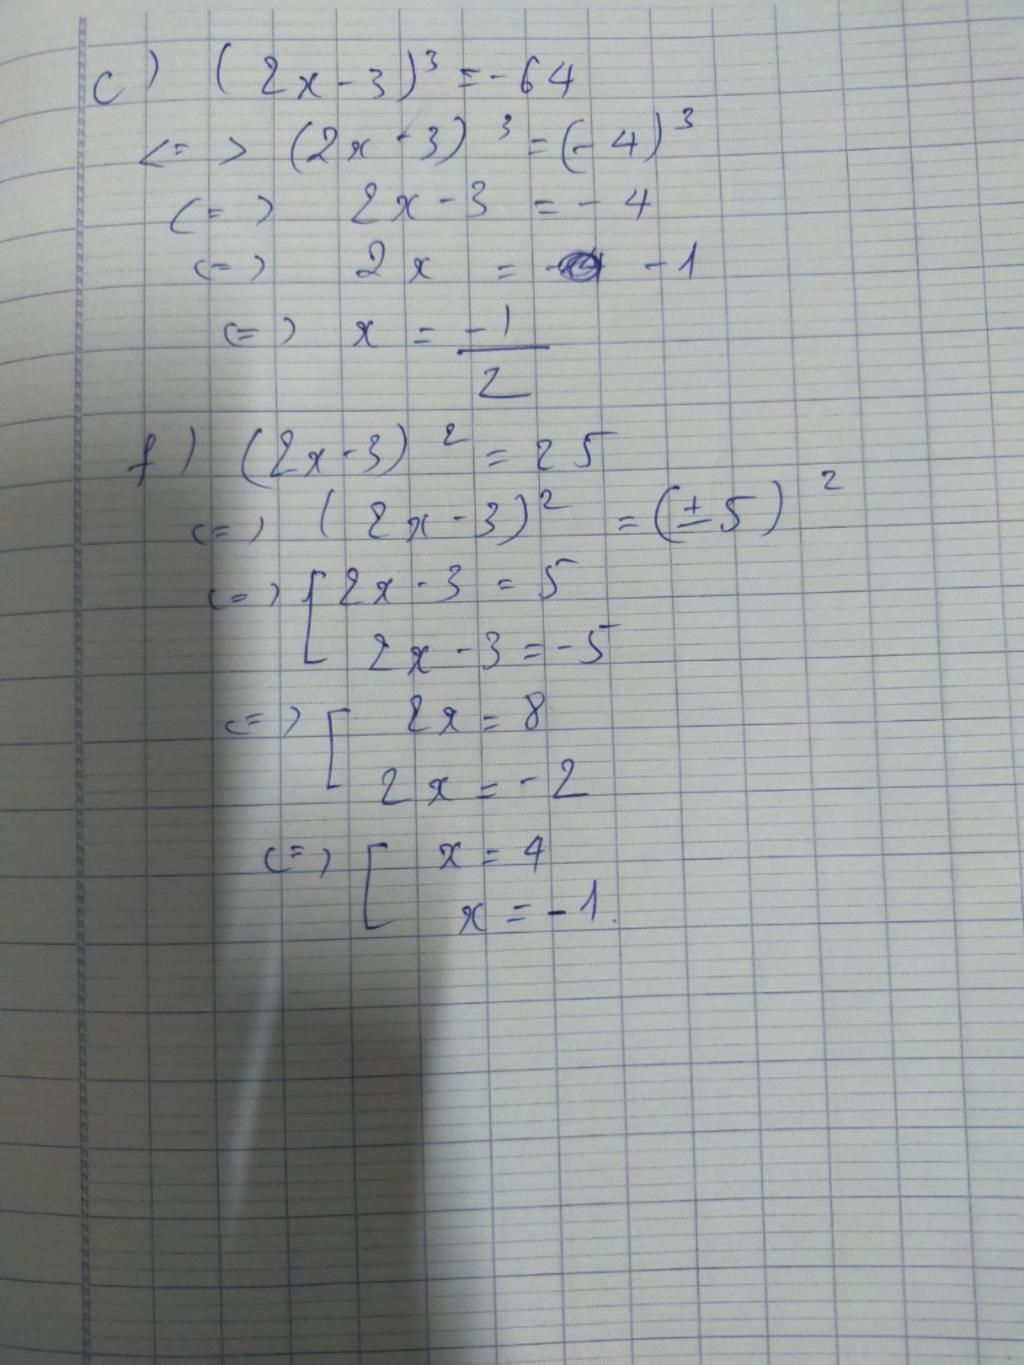 c) (2x - 3)³ = - 64
<=> (2x - 3)³ = (- 4)³
<=> 2x - 3 = - 4
<=> 2x = - 1
<=> x = -1/2
f) (2x - 3)² = 25
<=> (2x - 3)² = (± 5)²
<=> [ 2x - 3 = 5
2x - 3 = - 5
<=> [ 2x = 8
2x = - 2
<=> [ x = 4
x = - 1.